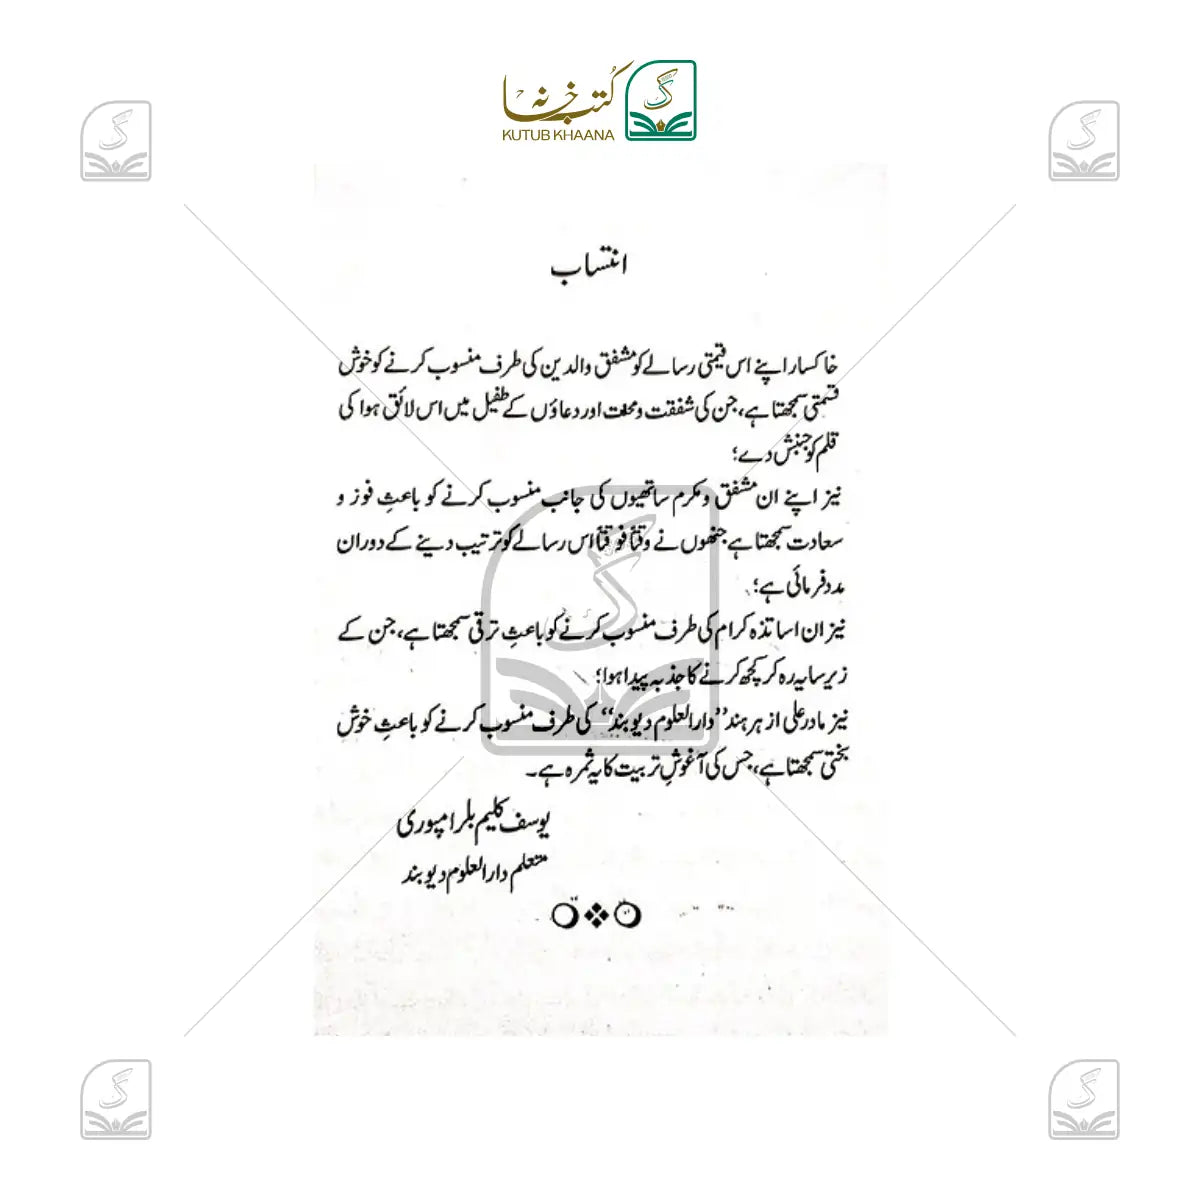 کتب خانہ
KUTUB KHAANA
انتساب
خاکسار اپنے اس قیمتی رسالے کو مشفق والدین کی طرف منسوب کرنے کو خوش
قسمتی سمجھتا ہے، جن کی شفقت و محنت اور دعاؤں کے طفیل میں اس لائق ہوا کی
قلم کو جنبش دے؛
نیز اپنے ان مشفق و مکرم ساتھیوں کی جانب منسوب کرنے کو باعثِ فوز و
سعادت سمجھتا ہے جنھوں نے وقتاً فوقتاً اس رسالے کو ترتیب دینے کے دوران
مدد فرمائی ہے؛
نیز ان اساتذہ کرام کی طرف منسوب کرنے کو باعثِ ترقی سمجھتا ہے، جن کے
زیر سایہ رہ کر کچھ کرنے کا جذبہ پیدا ہوا؛
نیز مادر علی از ہر ہند ”دارالعلوم دیوبند“ کی طرف منسوب کرنے کو باعثِ خوش
بختی سمجھتا ہے، جس کی آغوشِ تربیت کا یہ ثمرہ ہے۔
یوسف کلیم بلرامپوری
متعلم دارالعلوم دیوبند